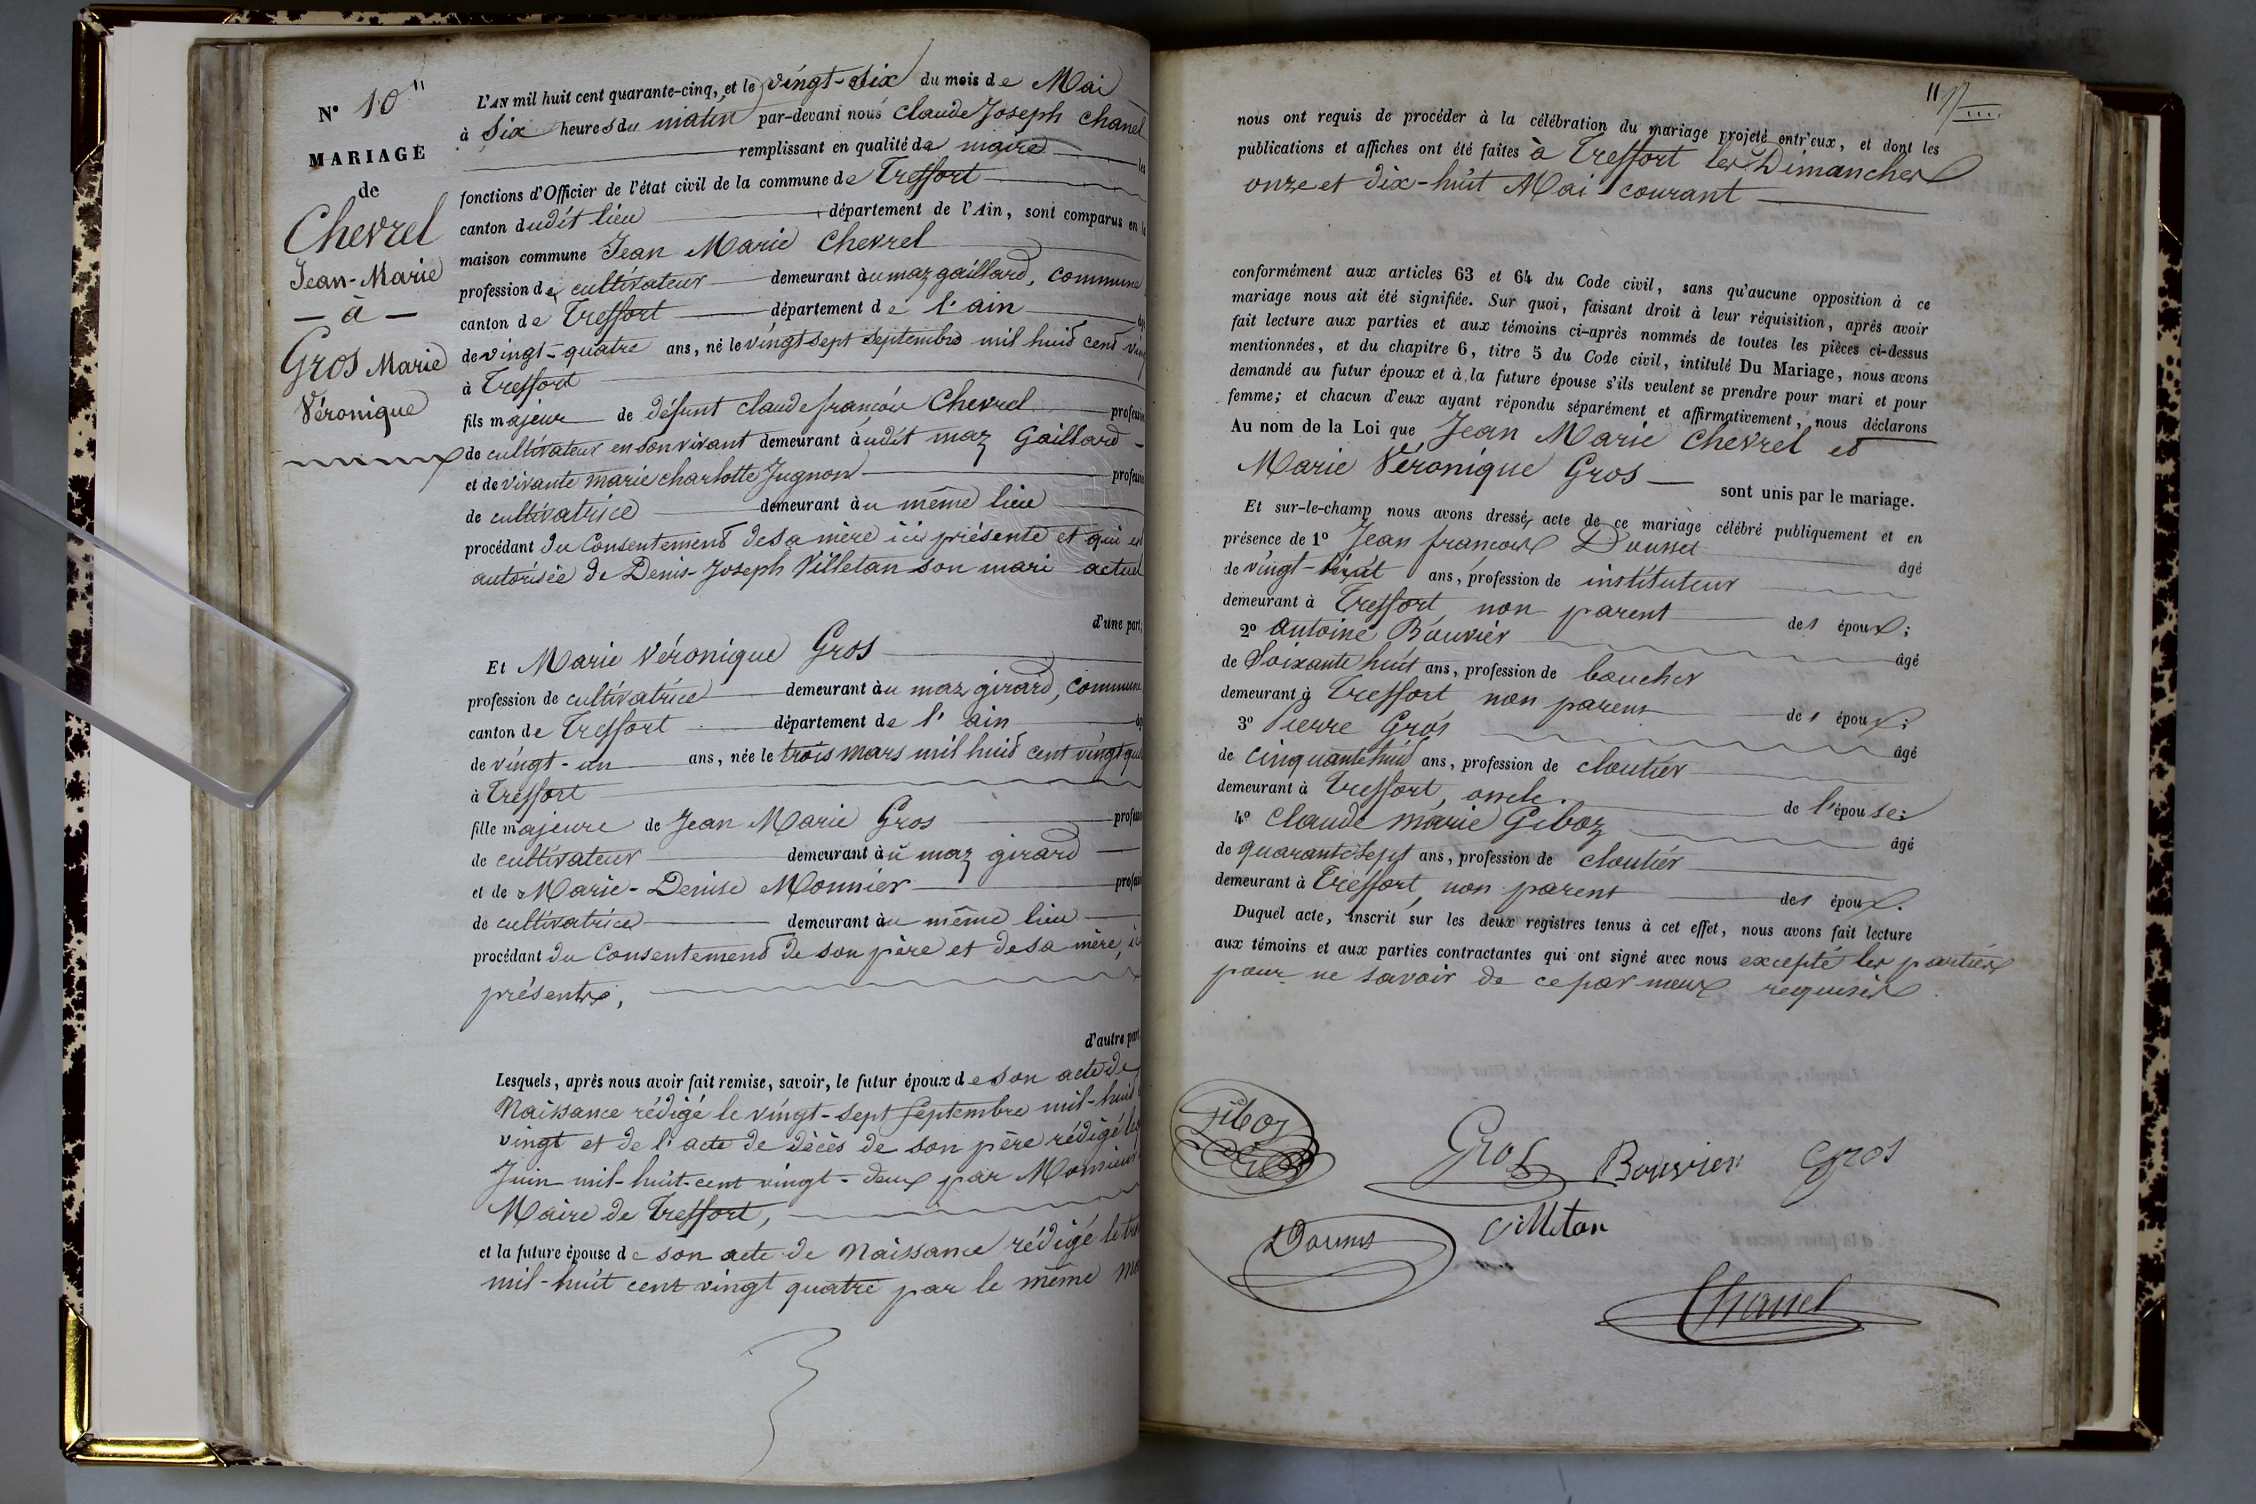 N° 10
MARIAGE
de
Chevrel
Jean-Marie
— à —
Gros Marie
Véronique
L'AN mil huit cent quarante-cinq, et le vingt-Six du mois de Mai
à Six heures du matin par-devant nous Claude Joseph Chanel
remplissant en qualité de maire les
fonctions d'Officier de l'état civil de la commune de Treffort
canton dudit lieu département de l'Ain, sont comparus en la
maison commune Jean Marie Chevrel
profession de cultivateur demeurant au maz gaillard, commune
canton de Treffort département de l'ain
de vingt-quatre ans, né le vingt sept Septembre mil huit cent ving
à Treffort
fils majeur de défunt Claude françois Chevrel profession
de cultivateur en son vivant demeurant audit maz Gaillard
et de vivante marie charlotte Jugnon profession
de cultivatrice demeurant au même lieu
procédant du Consentement de sa mère ici présente et qui est
autorisée de Denis-Joseph Villetan son mari actuel
d'une part,
Et Marie Véronique Gros
profession de cultivatrice demeurant au maz girard, commune
canton de Treffort département de l'ain
de vingt-un ans, née le trois mars mil huit cent vingt qu
à Treffort
fille majeure de Jean Marie Gros
de cultivateur demeurant au maz girard
et de Marie-Denise Monnier
de cultivatrice demeurant au même lieu
procédant du Consentement de son père et de sa mère, ici
présents,
d'autre part
Lesquels, après nous avoir fait remise, savoir, le futur époux de son acte de
Naissance rédigé le vingt-sept Septembre mil-huit
vingt et de l'acte de décès de son père rédigé le
Juin mil-huit-cent vingt-deux par Monsieur
Maire de Treffort,
et la future épouse de son acte de Naissance rédigé le tr
mil-huit cent vingt quatre par le même
nous ont requis de procéder à la célébration du mariage projeté entr'eux, et dont les
publications et affiches ont été faites à Treffort les Dimanches
onze et dix-huit Mai courant
conformément aux articles 63 et 64 du Code civil, sans qu'aucune opposition à ce
mariage nous ait été signifiée. Sur quoi, faisant droit à leur réquisition, après avoir
fait lecture aux parties et aux témoins ci-après nommés de toutes les pièces ci-dessus
mentionnées, et du chapitre 6, titre 5 du Code civil, intitulé Du Mariage, nous avons
demandé au futur époux et à la future épouse s'ils veulent se prendre pour mari et pour
femme; et chacun d'eux ayant répondu séparément et affirmativement, nous déclarons
Au nom de la Loi que Jean Marie Chevrel et
Marie Véronique Gros sont unis par le mariage.
Et sur-le-champ nous avons dressé acte de ce mariage célébré publiquement et en
présence de 1° Jean françois âgé
de vingt-huit ans, profession de instituteur
demeurant à Treffort, non parent des époux;
2° Antoine Bouvier âgé
de Soixante huit ans, profession de boucher
demeurant à Treffort non parent des époux;
3° Pierre Gros âgé
de cinquante huit ans, profession de cloutier
demeurant à Treffort, oncle de l'épouse;
4° Claude marie Giboz âgé
de quarante sept ans, profession de cloutier
demeurant à Treffort, non parent des époux.
Duquel acte, inscrit sur les deux registres tenus à cet effet, nous avons fait lecture
aux témoins et aux parties contractantes qui ont signé avec nous excepté les parties
pour ne savoir de ce par nous requises
Giboz
Gros Bouvier Gros
Villetan
Chanel